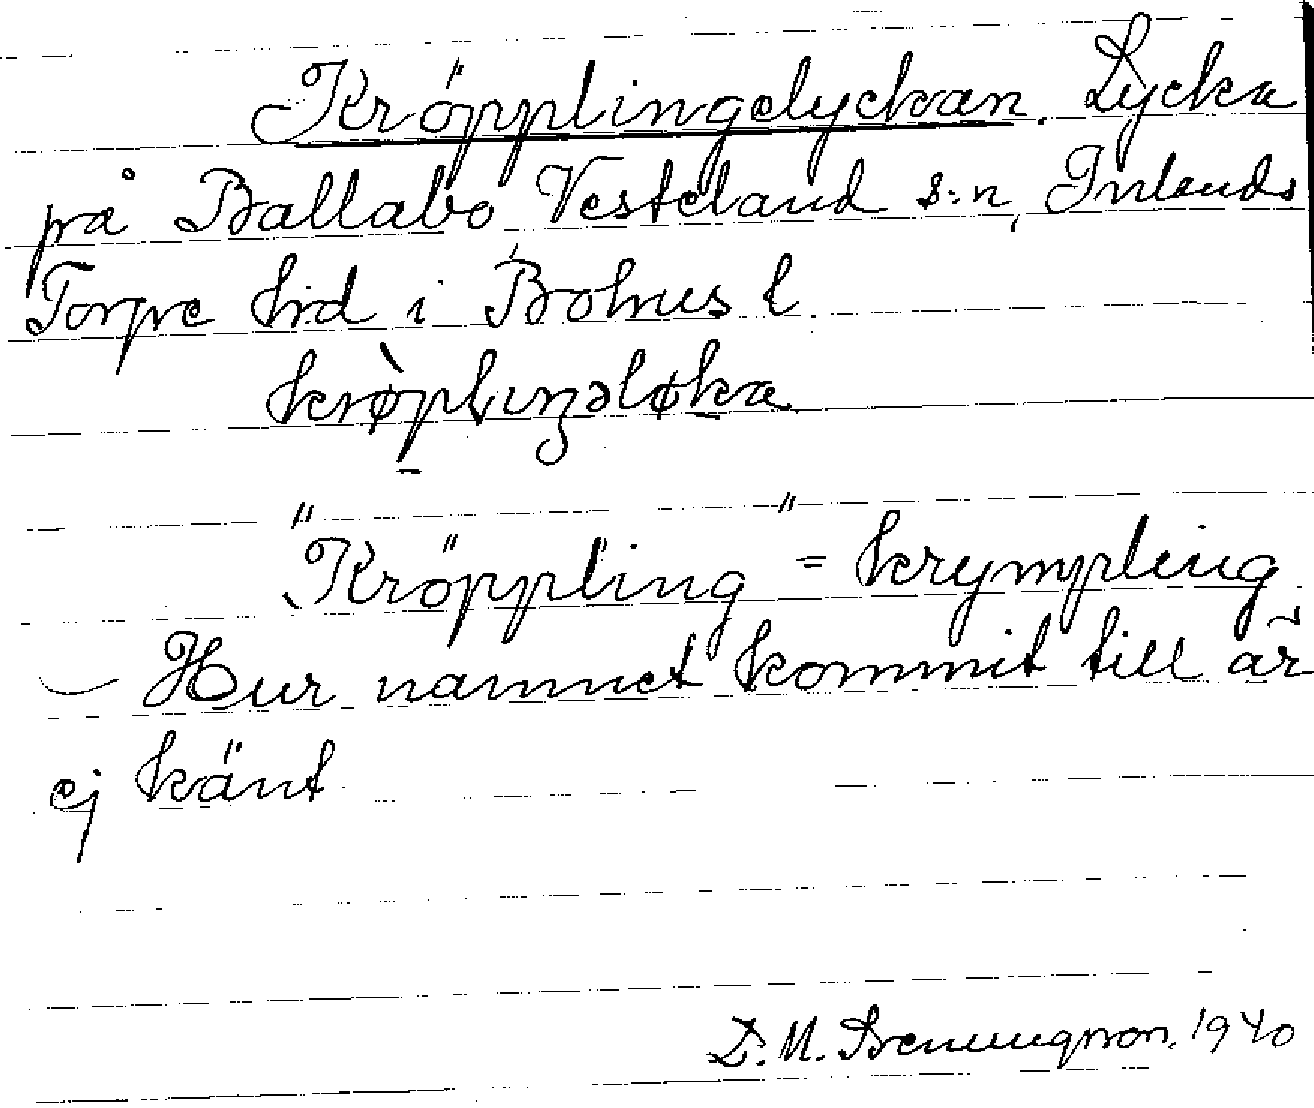 Kröpplingelyckan. Lycka
på Ballabo Vesteland s:n, Inlands
Torpe hrd i Bohus l.
krø̀plıŋəløka
"Kröppling" = krympling
Hur namnet kommit till är
ej känt
D. M. 1940